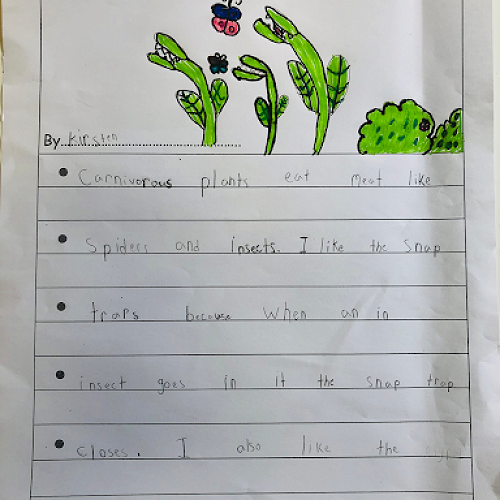 By Kirsten
Carnivorous plants eat meat like
Spiders and insects. I like the Snap
traps because When an in
insect goes in it the snap trap
closes. I also like the